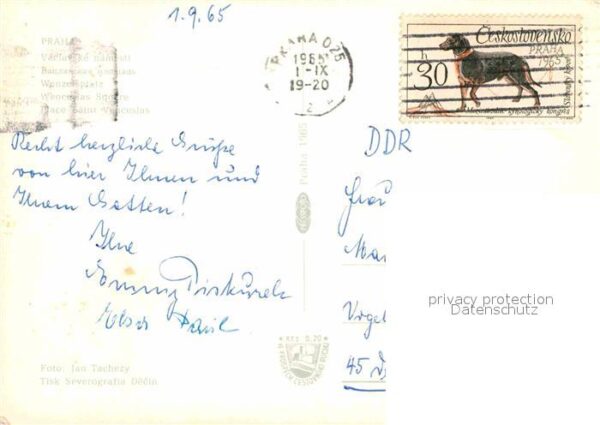 1.9.65
PRAHA
Václavské náměstí
Wenzelsplatz
Wenceslas Square
Place Saint Venceslas
PRAHA 025
1965
1-IX
19-20
2
Československo
PRAHA
1965
h
30
Mezinárodní kynologický kongres
Recht herzliche Grüße
von hier Ihnen und
Ihrem Gatten!
Ihre
Praha 1965
DDR
Frau
Ma
45 D
privacy protection
Datenschutz
Kčs 0,20
Foto: Jan Tachezy
Tisk Severografia Děčín